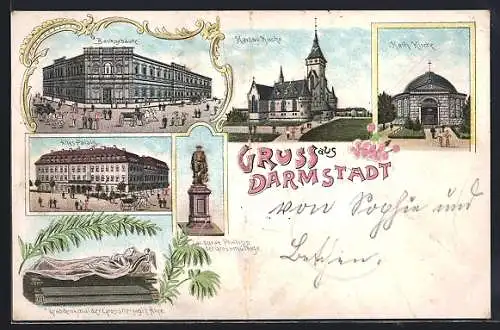 Bankgebäude
Martins Kirche
Kath. Kirche
Altes Palais
GRUSS aus
DARMSTADT
von Sophie und
Landgraf Philipp
der Grossmüthige
Grabdenkmal der Grossherzogin Alice